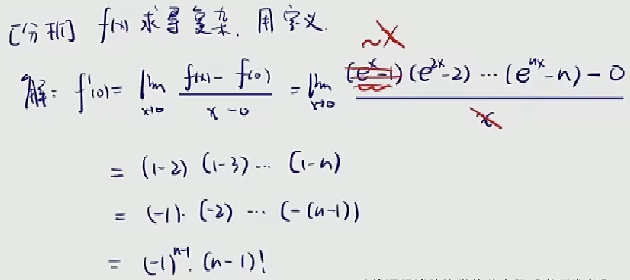 [分析] f(x) 求导复杂. 用定义.
~x
解: f'(0) = lim x→0 (f(x) - f(0))/(x - 0) = lim x→0 ((e^x-1)(e^2x-2) ⋯ (e^nx-n) - 0)/x
= (1-2) (1-3) ⋯ (1-n)
= (-1)· (-2) ⋯ (-(n-1))
= (-1)^n-1 · (n-1)!